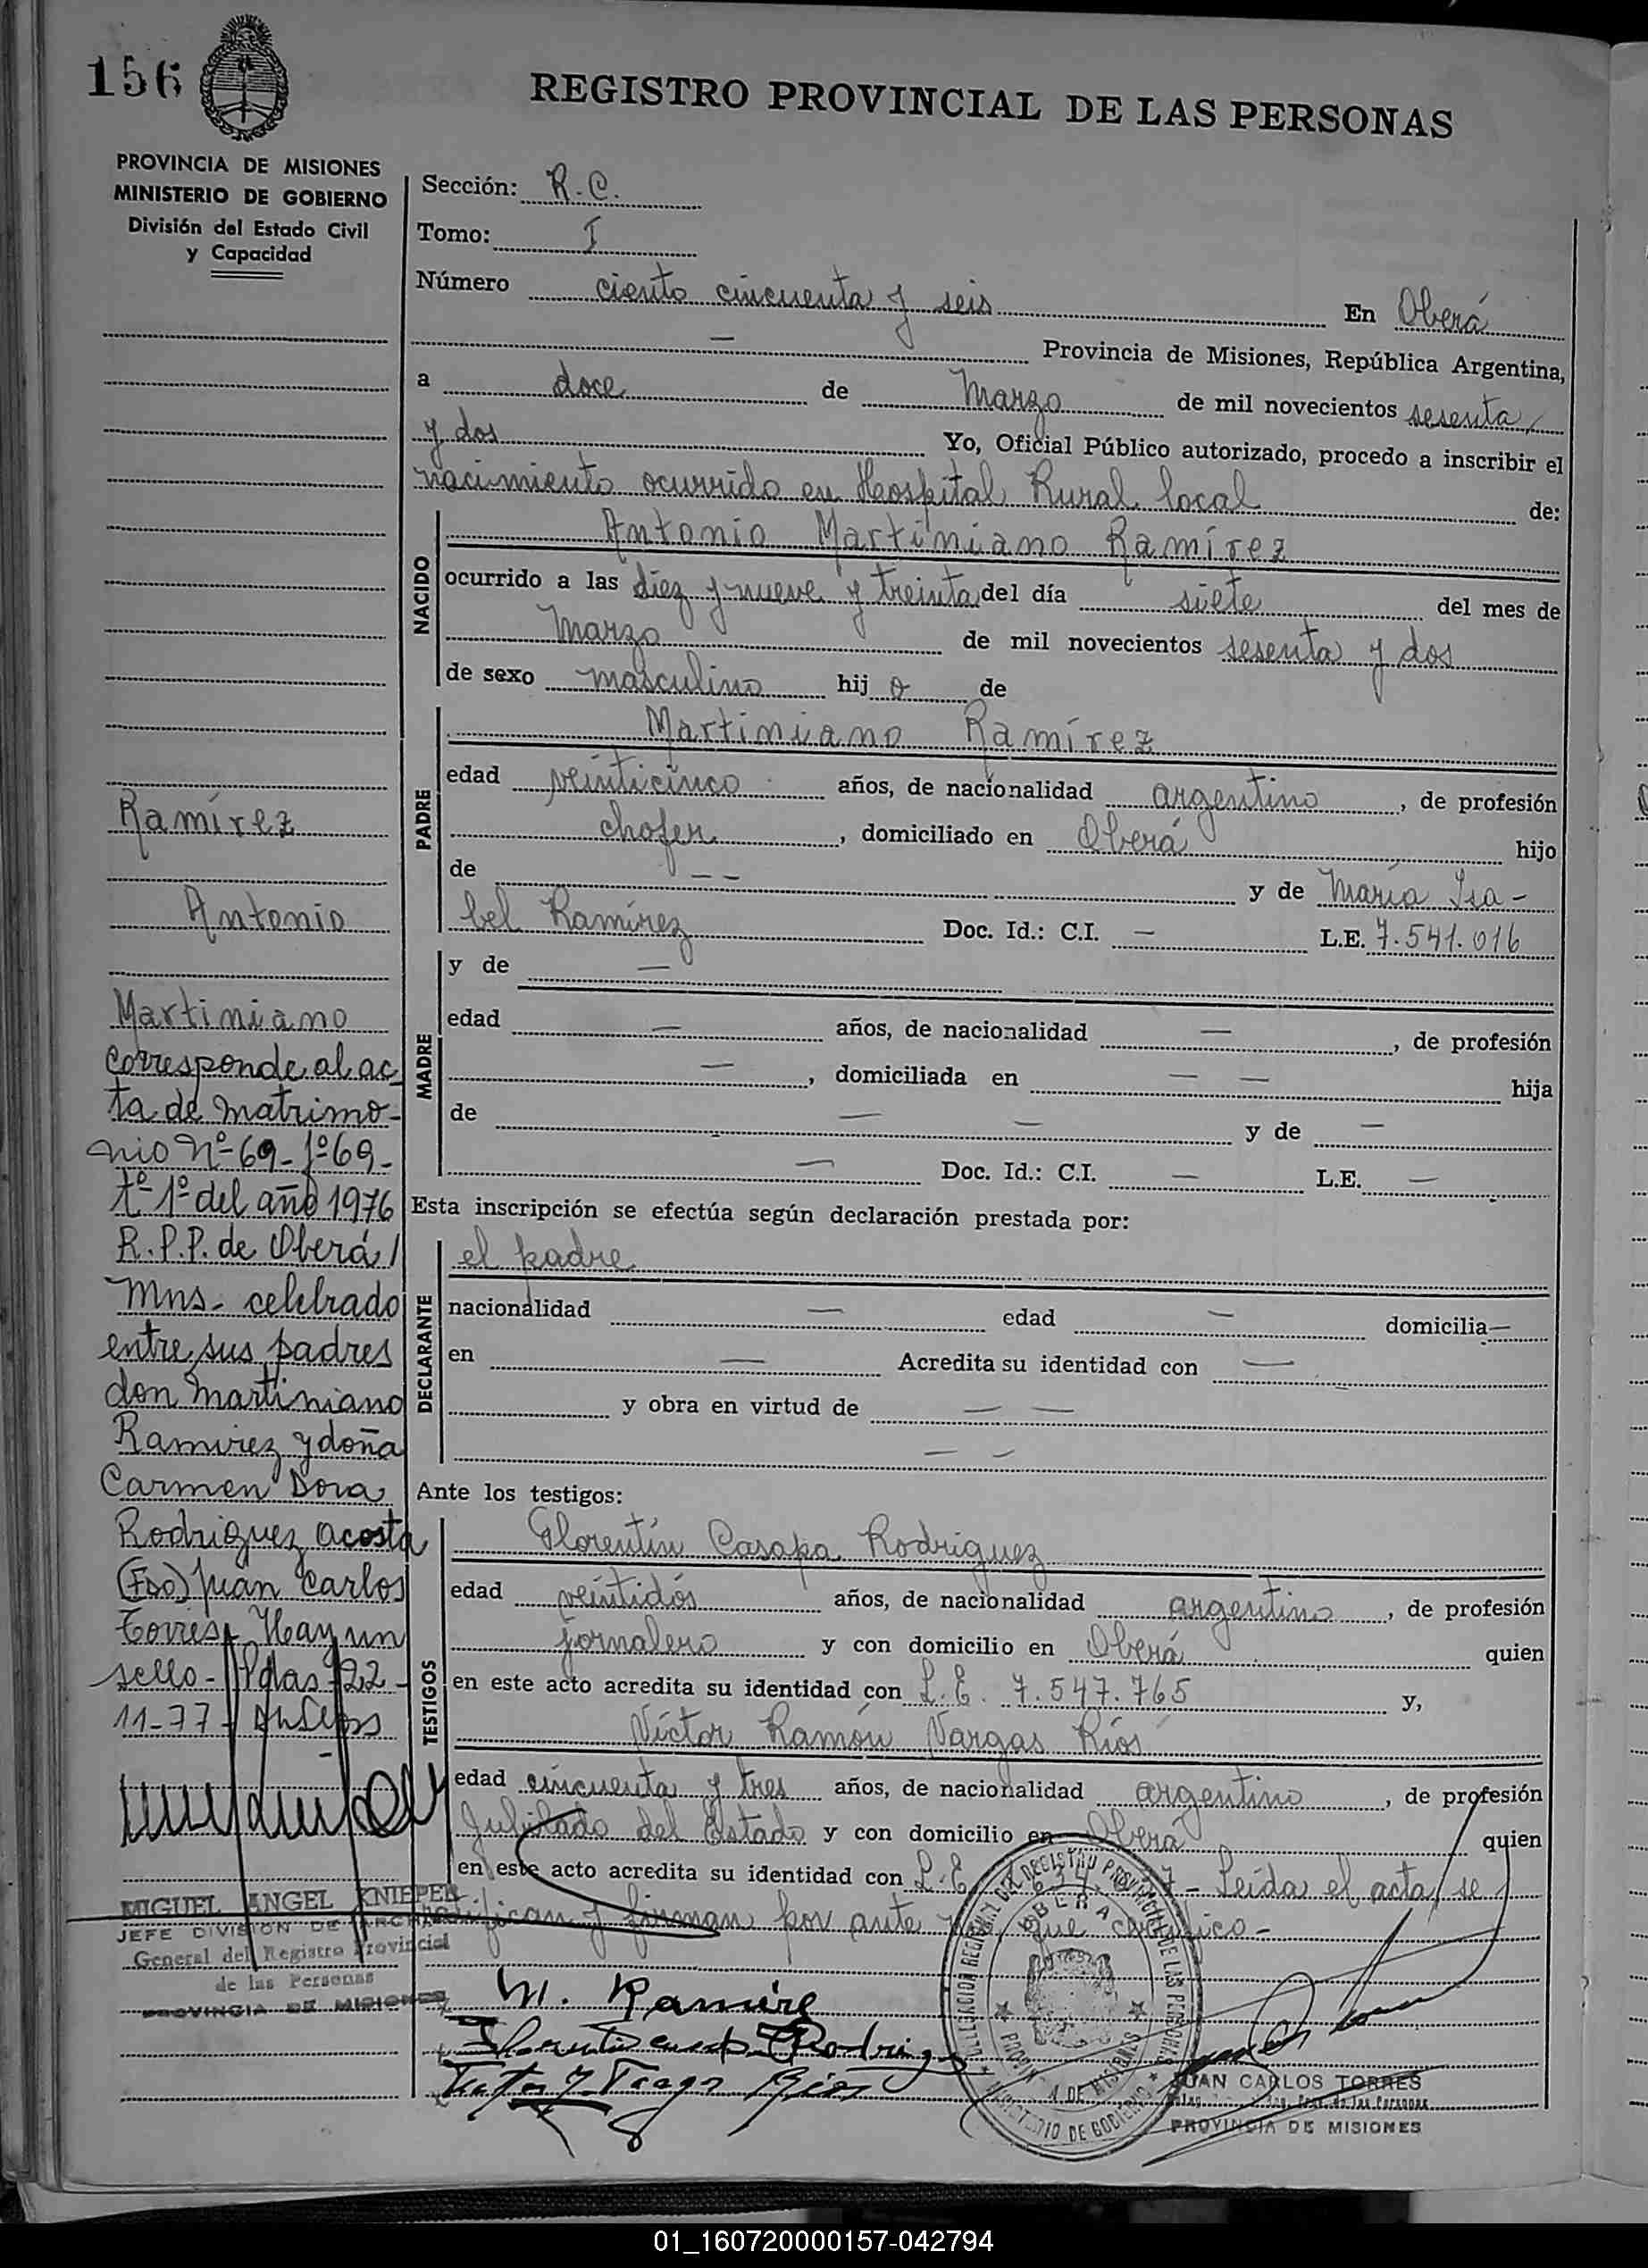 156
REGISTRO PROVINCIAL DE LAS PERSONAS
PROVINCIA DE MISIONES
MINISTERIO DE GOBIERNO
División del Estado Civil
y Capacidad
Sección: R. C.
Tomo: I
Número ciento cincuenta y seis En Oberá
— Provincia de Misiones, República Argentina,
a doce de Marzo de mil novecientos sesenta
y dos Yo, Oficial Público autorizado, procedo a inscribir el
nacimiento ocurrido en Hospital Rural local de:
NACIDO
Antonio Martiniano Ramírez
ocurrido a las diez y nueve y treinta del día siete del mes de
Marzo de mil novecientos sesenta y dos
de sexo masculino hij o de
PADRE
Martiniano Ramírez
edad veinticinco años, de nacionalidad argentino, de profesión
chofer, domiciliado en Oberá hijo
de — — y de María Isa-
bel Ramírez Doc. Id.: C.I. — L.E. 7.541.016
MADRE
y de —
edad — años, de nacionalidad —, de profesión
—, domiciliada en — — hija
de — — y de —
— Doc. Id.: C.I. — L.E. —
Esta inscripción se efectúa según declaración prestada por:
DECLARANTE
el padre
nacionalidad — edad — domicilia—
en — Acredita su identidad con —
y obra en virtud de — —
— —
Ante los testigos:
TESTIGOS
Florentín Casapa Rodriguez
edad veintidós años, de nacionalidad argentino, de profesión
jornalero y con domicilio en Oberá quien
en este acto acredita su identidad con L. E. 7.547.765 y,
Víctor Ramón Vargas Ríos
edad cincuenta y tres años, de nacionalidad argentino, de profesión
Jubilado del Estado y con domicilio en Oberá quien
en este acto acredita su identidad con L. E. 7 - Leída el acta, se
ratifican y firman por ante que certifico -
Ramírez
Antonio
Martiniano
Corresponde al ac
ta de matrimo-
nio Nº 69 - fº 69 -
tº 1º del año 1976
R.P.P. de Oberá /
Mns - celebrado
entre sus padres
don Martiniano
Ramirez y doña
Carmen Dora
Rodriguez Acosta
(Fdo) Juan Carlos
Torres - Hay un
sello - Pdas 22 -
11-77
MIGUEL ANGEL KNIEPER
JEFE DIVISION DE ARCHIVO
General del Registro Provincial
de las Personas
PROVINCIA DE MISIONES
M. Ramire
OBERA
MINISTERIO DE GOBIERNO
JUAN CARLOS TORRES
PROVINCIA DE MISIONES
01_160720000157-042794